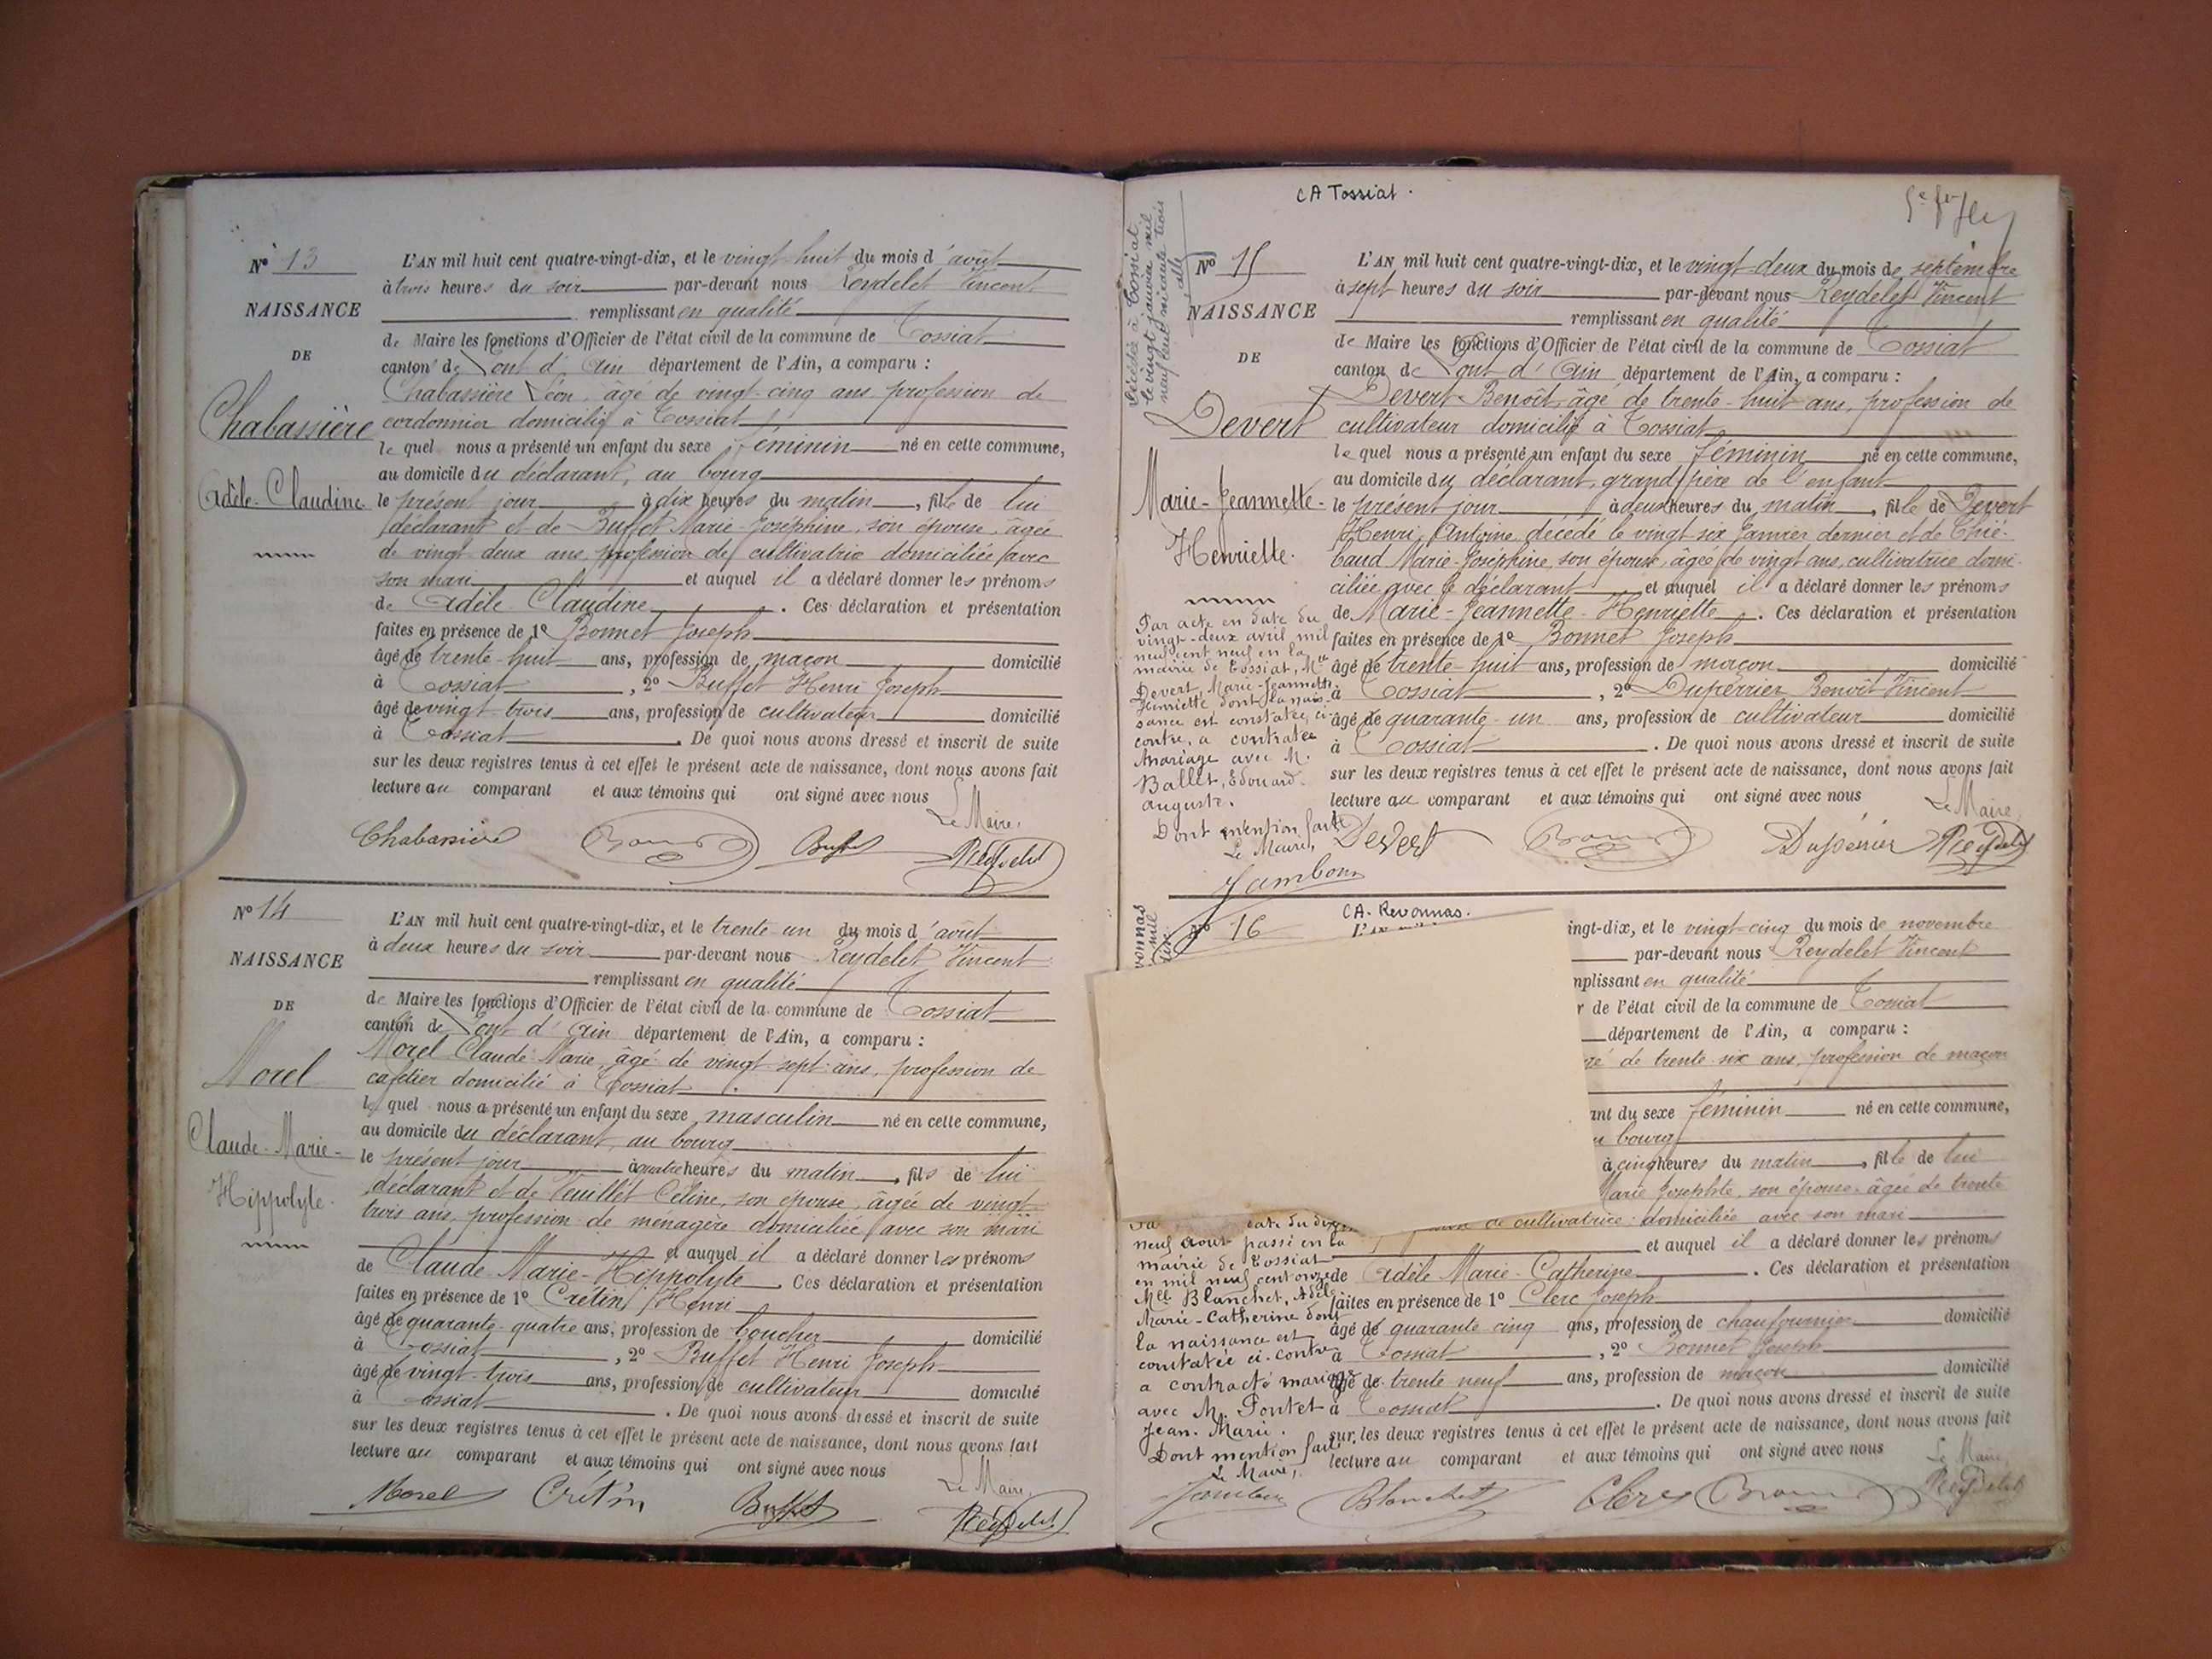 Nº 13
NAISSANCE
DE
Chabassière
Adèle-Claudine
L'AN mil huit cent quatre-vingt-dix, et le vingt-huit du mois d'août
à trois heures du soir par-devant nous Reydelet Vincent
remplissant en qualité
de Maire les fonctions d'Officier de l'état civil de la commune de Tossiat
canton de Pont d'Ain département de l'Ain, a comparu :
Chabassière Léon, âgé de vingt-cinq ans, profession de
cordonnier domicilié à Tossiat
le quel nous a présenté un enfant du sexe féminin né en cette commune,
au domicile du déclarant, au bourg
le présent jour à dix heures du matin, fille de lui
déclarant et de Buffet Marie-Joséphine, son épouse, âgée
de vingt-deux ans, profession de cultivatrice domiciliée avec
son mari et auquel il a déclaré donner les prénoms
de Adèle-Claudine. Ces déclaration et présentation
faites en présence de 1º Bonnet Joseph
âgé de trente-huit ans, profession de maçon domicilié
à Tossiat, 2º Buffet Henri Joseph
âgé de vingt-trois ans, profession de cultivateur domicilié
à Tossiat. De quoi nous avons dressé et inscrit de suite
sur les deux registres tenus à cet effet le présent acte de naissance, dont nous avons fait
lecture au comparant et aux témoins qui ont signé avec nous
Le Maire,
Chabassière Buffet Reydelet
Nº 14
NAISSANCE
DE
Morel
Claude-Marie-
Hippolyte.
L'AN mil huit cent quatre-vingt-dix, et le trente-un du mois d'août
à deux heures du soir par-devant nous Reydelet Vincent
remplissant en qualité
de Maire les fonctions d'Officier de l'état civil de la commune de Tossiat
canton de Pont d'Ain département de l'Ain, a comparu :
Morel Claude-Marie, âgé de vingt-sept ans, profession de
cafetier domicilié à Tossiat
le quel nous a présenté un enfant du sexe masculin né en cette commune,
au domicile du déclarant, au bourg
le présent jour à quatre heures du matin, fils de lui
déclarant et de Teuillet Céline, son épouse, âgée de vingt-
trois ans, profession de ménagère domiciliée avec son mari
et auquel il a déclaré donner les prénoms
de Claude-Marie-Hippolyte. Ces déclaration et présentation
faites en présence de 1º Crétin Henri
âgé de quarante-quatre ans, profession de boucher domicilié
à Tossiat, 2º Buffet Henri Joseph
âgé de vingt-trois ans, profession de cultivateur domicilié
à Tossiat. De quoi nous avons dressé et inscrit de suite
sur les deux registres tenus à cet effet le présent acte de naissance, dont nous avons fait
lecture au comparant et aux témoins qui ont signé avec nous
Le Maire,
Morel Crétin Buffet Reydelet
CA Tossiat.
Décédée à Tossiat
le vingt janvier mil
neuf cent soixante trois
Nº 15
NAISSANCE
DE
Devert
Marie-Jeannette-
Henriette.
Par acte en date du
vingt-deux avril mil
neuf cent neuf en la
mairie de Tossiat, Mlle
Devert, Marie-Jeannette
Henriette dont la nais-
sance est constatée ci-
contre, a contracté
mariage avec M.
Ballet, Edouard-
auguste.
Dont mention faite
Le Maire,
Jambon
L'AN mil huit cent quatre-vingt-dix, et le vingt-deux du mois de septembre
à sept heures du soir par-devant nous Reydelet Vincent
remplissant en qualité
de Maire les fonctions d'Officier de l'état civil de la commune de Tossiat
canton de Pont d'Ain département de l'Ain, a comparu :
Devert Benoît, âgé de trente-huit ans, profession de
cultivateur domicilié à Tossiat
le quel nous a présenté un enfant du sexe féminin né en cette commune,
au domicile du déclarant, grand père de l'enfant
le présent jour à deux heures du matin, fille de Devert
Henri Antoine décédé le vingt six Janvier dernier et de Thié-
baud Marie-Joséphine, son épouse, âgée de vingt ans, cultivatrice domi-
ciliée avec le déclarant et auquel il a déclaré donner les prénoms
de Marie-Jeannette-Henriette. Ces déclaration et présentation
faites en présence de 1º Bonnet Joseph
âgé de trente-huit ans, profession de maçon domicilié
à Tossiat, 2º Duperrier Benoît Vincent
âgé de quarante-un ans, profession de cultivateur domicilié
à Tossiat. De quoi nous avons dressé et inscrit de suite
sur les deux registres tenus à cet effet le présent acte de naissance, dont nous avons fait
lecture au comparant et aux témoins qui ont signé avec nous
Le Maire,
Devert Dupérrier Reydelet
Nº 16
CA. Revonnas.
L'AN
ingt-dix, et le vingt-cinq du mois de novembre
par-devant nous Reydelet Vincent
mplissant en qualité
r de l'état civil de la commune de Tossiat
département de l'Ain, a comparu :
gé de trente-six ans, profession de maçon
ant du sexe féminin né en cette commune,
u bourg
à cinq heures du matin, fille de lui
Marie Josephte, son épouse, âgée de trente
de cultivatrice domiciliée avec son mari
et auquel il a déclaré donner les prénoms
de Adèle Marie-Catherine. Ces déclaration et présentation
faites en présence de 1º Clerc Joseph
âgé de quarante-cinq ans, profession de chaufournier domicilié
à Tossiat, 2º Bonnet Joseph
âgé de trente-neuf ans, profession de maçon domicilié
à Tossiat. De quoi nous avons dressé et inscrit de suite
sur les deux registres tenus à cet effet le présent acte de naissance, dont nous avons fait
lecture au comparant et aux témoins qui ont signé avec nous
Le Maire,
neuf août passé en la
mairie de Tossiat
en mil neuf cent onze
Mlle Blanchet, Adèle
Marie-Catherine dont
la naissance est
constatée ci-contre
a contracté mariage
avec M. Pontet
Jean-Marie.
Dont mention faite.
Le Maire,
Jambon Blanchet Clerc Reydelet